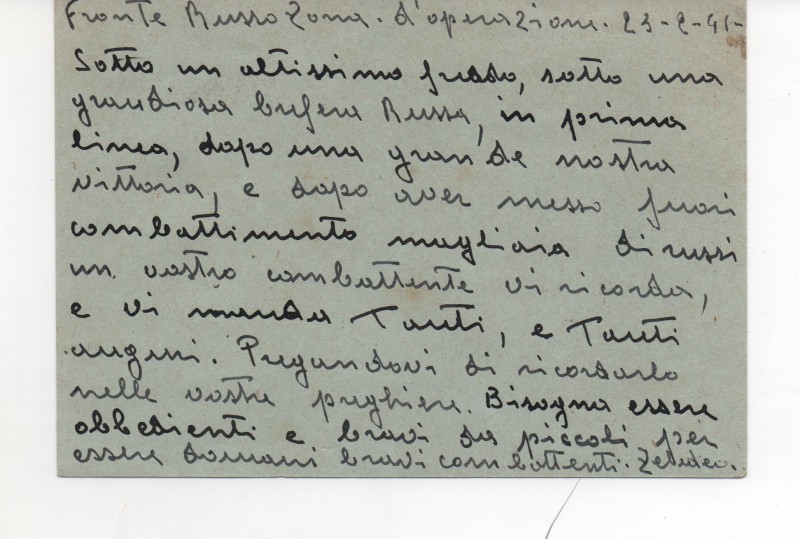 Fronte Russo Zona. d'operazione. 23-2-41-
Sotto un altissimo freddo, sotto una
grandiosa bufera Russa, in prima
linea, dopo una grande nostra
vittoria, e dopo aver messo fuori
combattimento migliaia di russi
un vostro combattente vi ricorda,
e vi manda Tanti, e Tanti
auguri. Pregandovi di ricordarlo
nelle vostre preghiere. Bisogna essere
obbedienti e bravi da piccoli per
essere domani bravi combattenti.